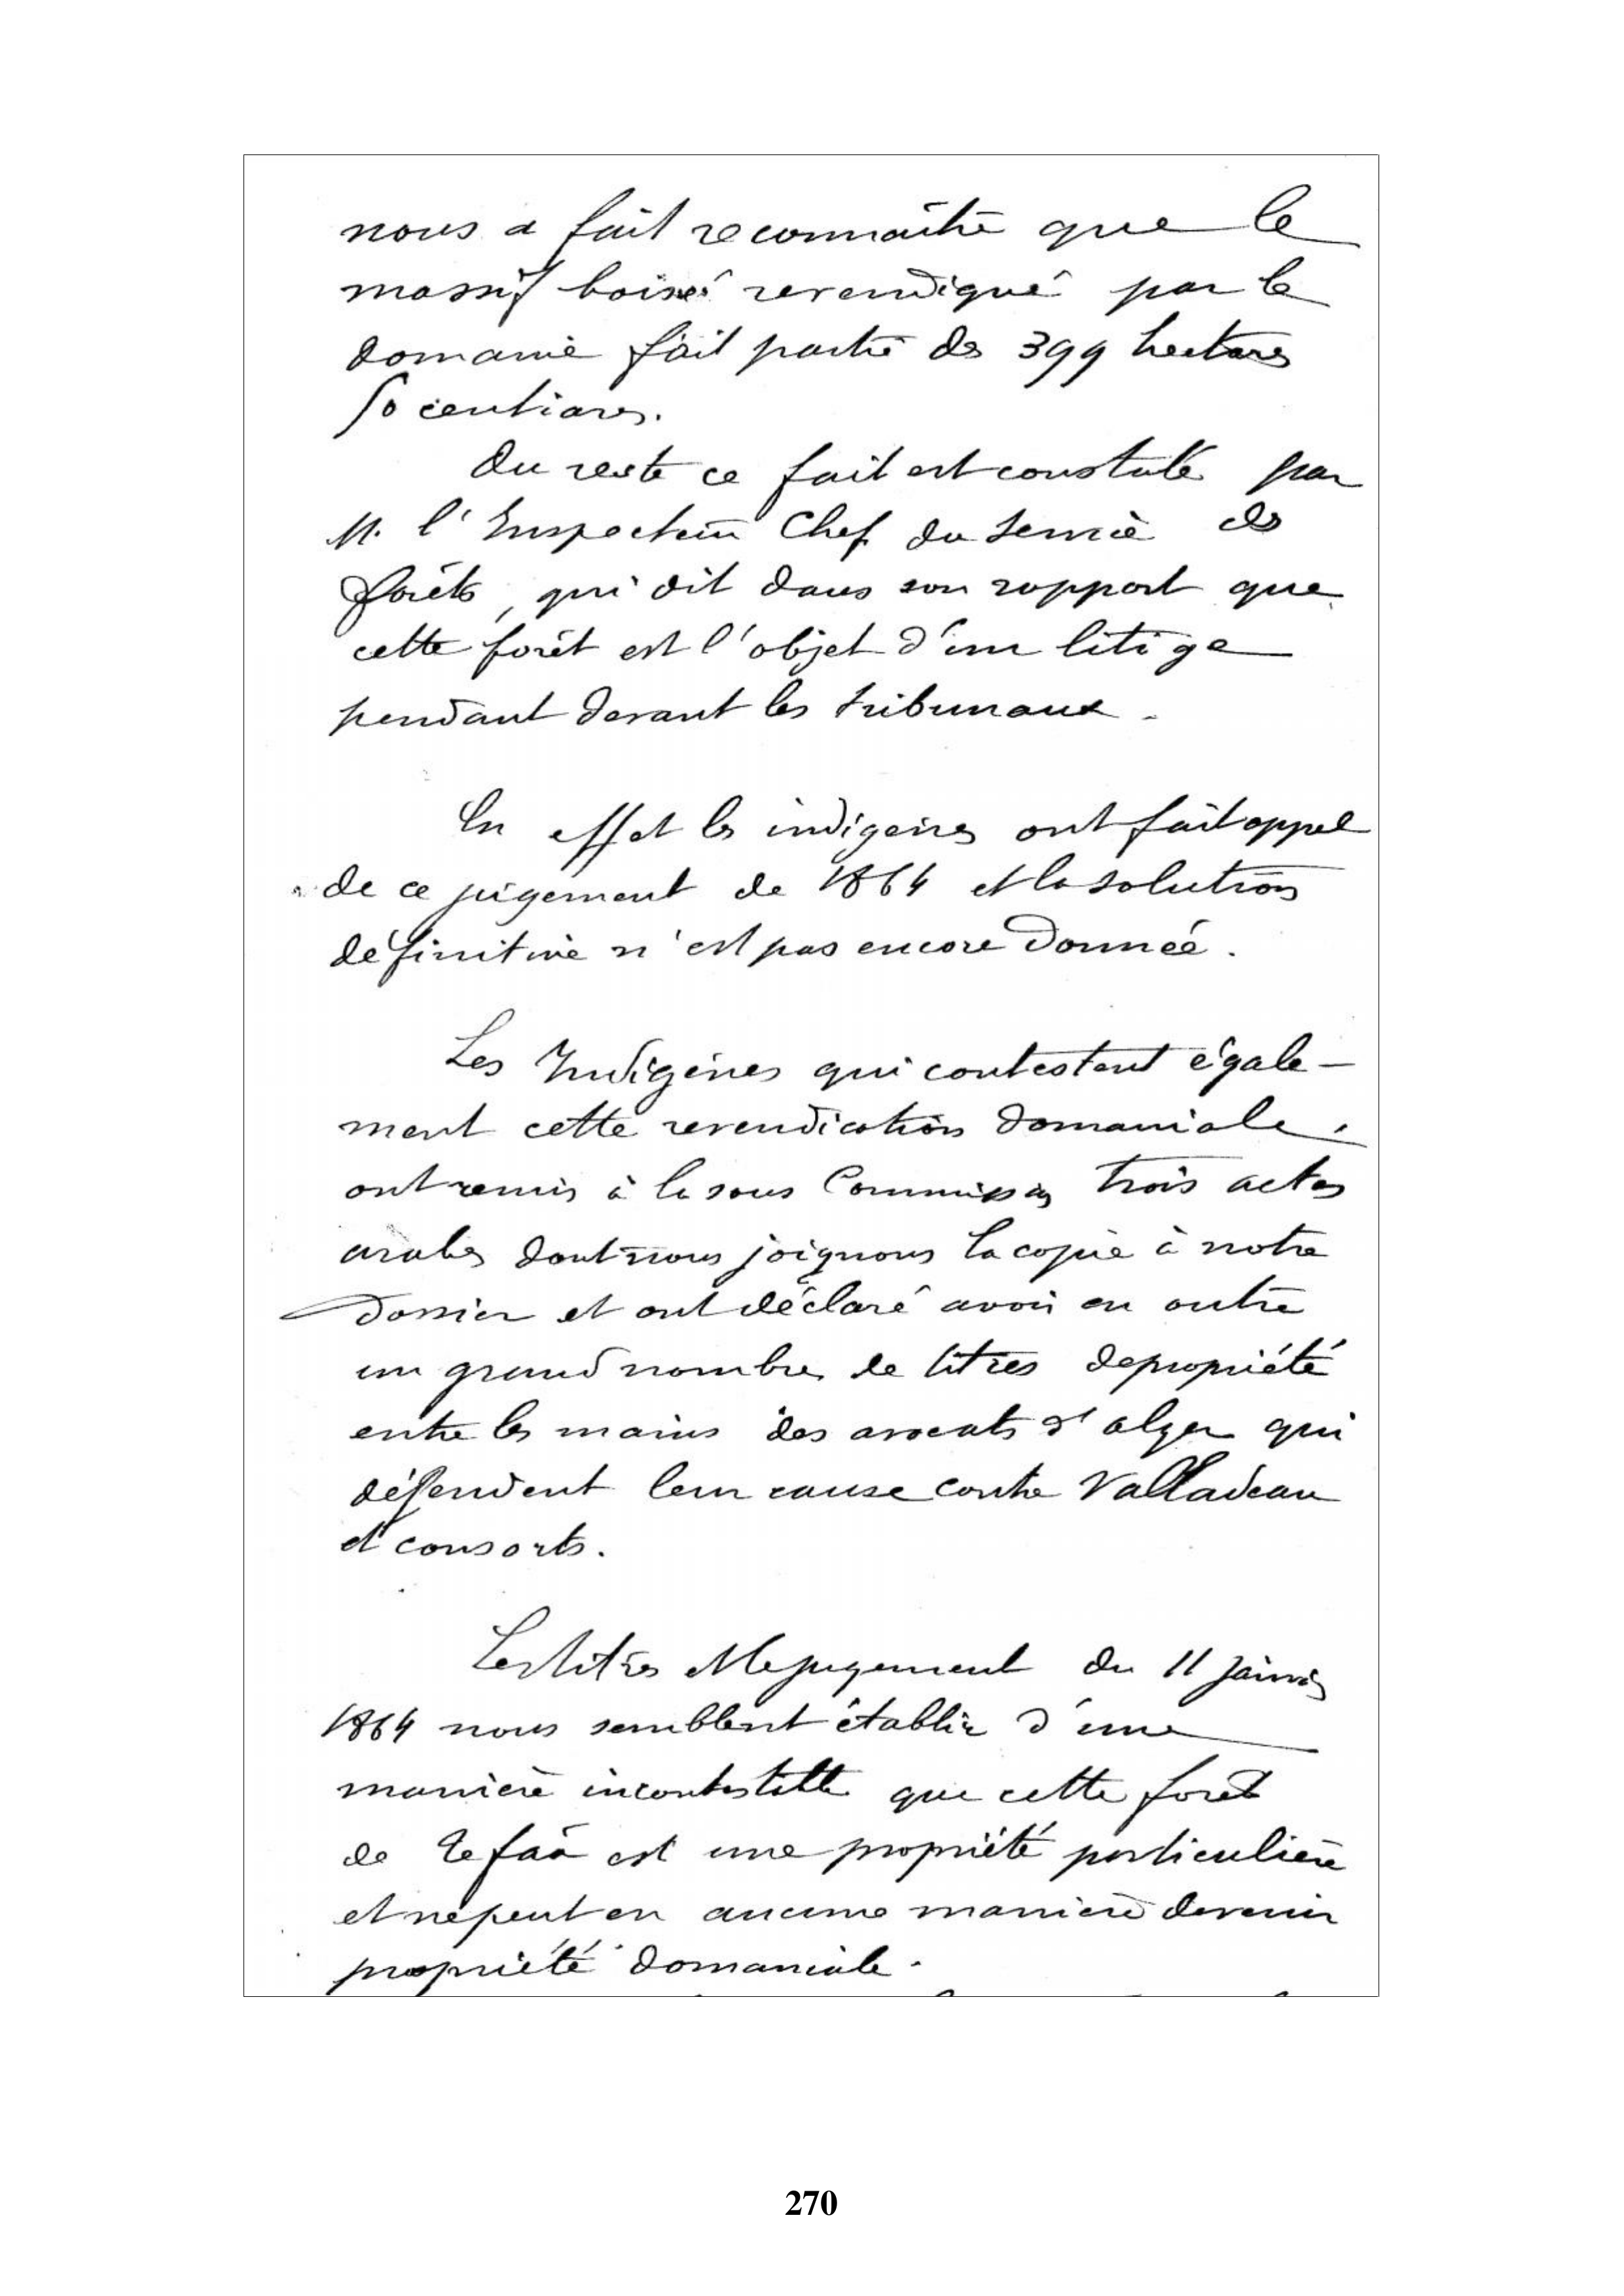 nous a fait reconnaître que le
massif boisé revendiqué par le
domaine fait partie des 399 hectares
50 centiares.
Du reste ce fait est constaté par
M. l'Inspecteur Chef du Service des
forêts, qui dit dans son rapport que
cette forêt est l'objet d'un litige
pendant devant les tribunaux.
En effet les indigènes ont fait appel
de ce jugement de 1864 et la solution
définitive n'est pas encore donnée.
Les Indigènes qui contestent égale-
ment cette revendication domaniale,
ont remis à la sous Commission trois actes
arabes dont nous joignons la copie à notre
dossier et ont déclaré avoir en outre
un grand nombre de titres de propriété
entre les mains des avocats d'alger qui
défendent leur cause contre Valladeau
et consorts.
Les titres et le jugement du 11 Janvier
1864 nous semblent établir d'une
manière incontestable que cette forêt
de est une propriété particulière
et ne peut en aucune manière devenir
propriété domaniale.
270